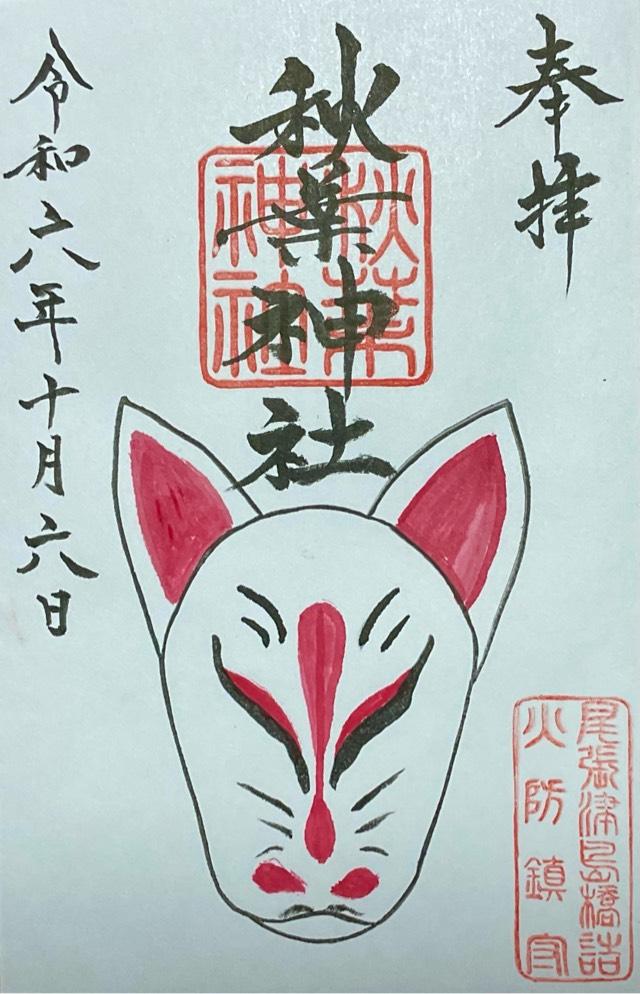 奉拝
秋葉神社
秋葉
神社
令和六年十月六日
尾張津島橋詰
火防鎮守